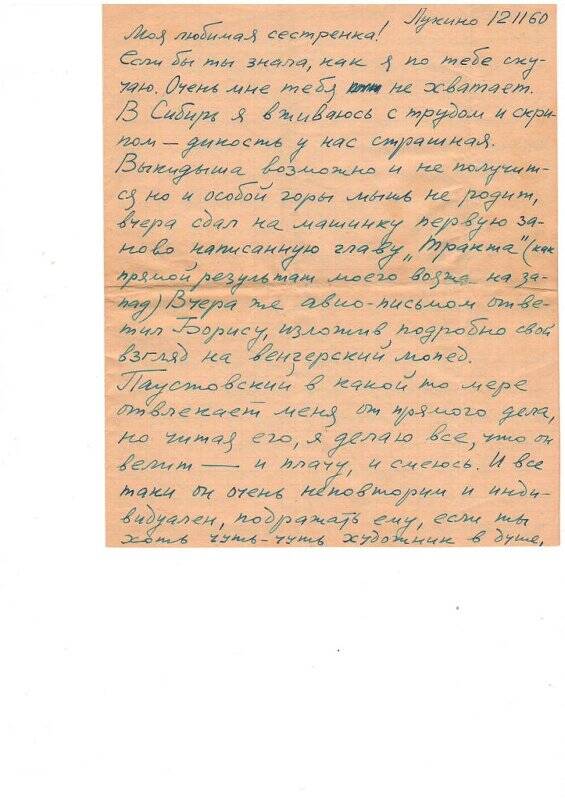 Лукино 12 II 60
Моя любимая сестренка!
Если бы ты знала, как я по тебе ску-
чаю. Очень мне тебя не хватает.
В Сибирь я вживаюсь с трудом и скри-
пом — дикость у нас страшная.
Выкидыша возможно и не получит-
ся но и особой горы мышь не родит,
вчера сдал на машинку первую за-
ново написанную главу „Тракта" (как
прямой результат моего вояжа на за-
пад) Вчера же авио-письмом отве-
тил Борису, изложив подробно свой
взгляд на венгерский мопед.
Паустовский в какой то мере
отвлекает меня от прямого дела,
но читая его, я делаю все, что он
велит — и плачу, и смеюсь. И все
таки он очень неповторим и инди-
видуален, подражать ему, если ты
хоть чуть-чуть художник в душе,